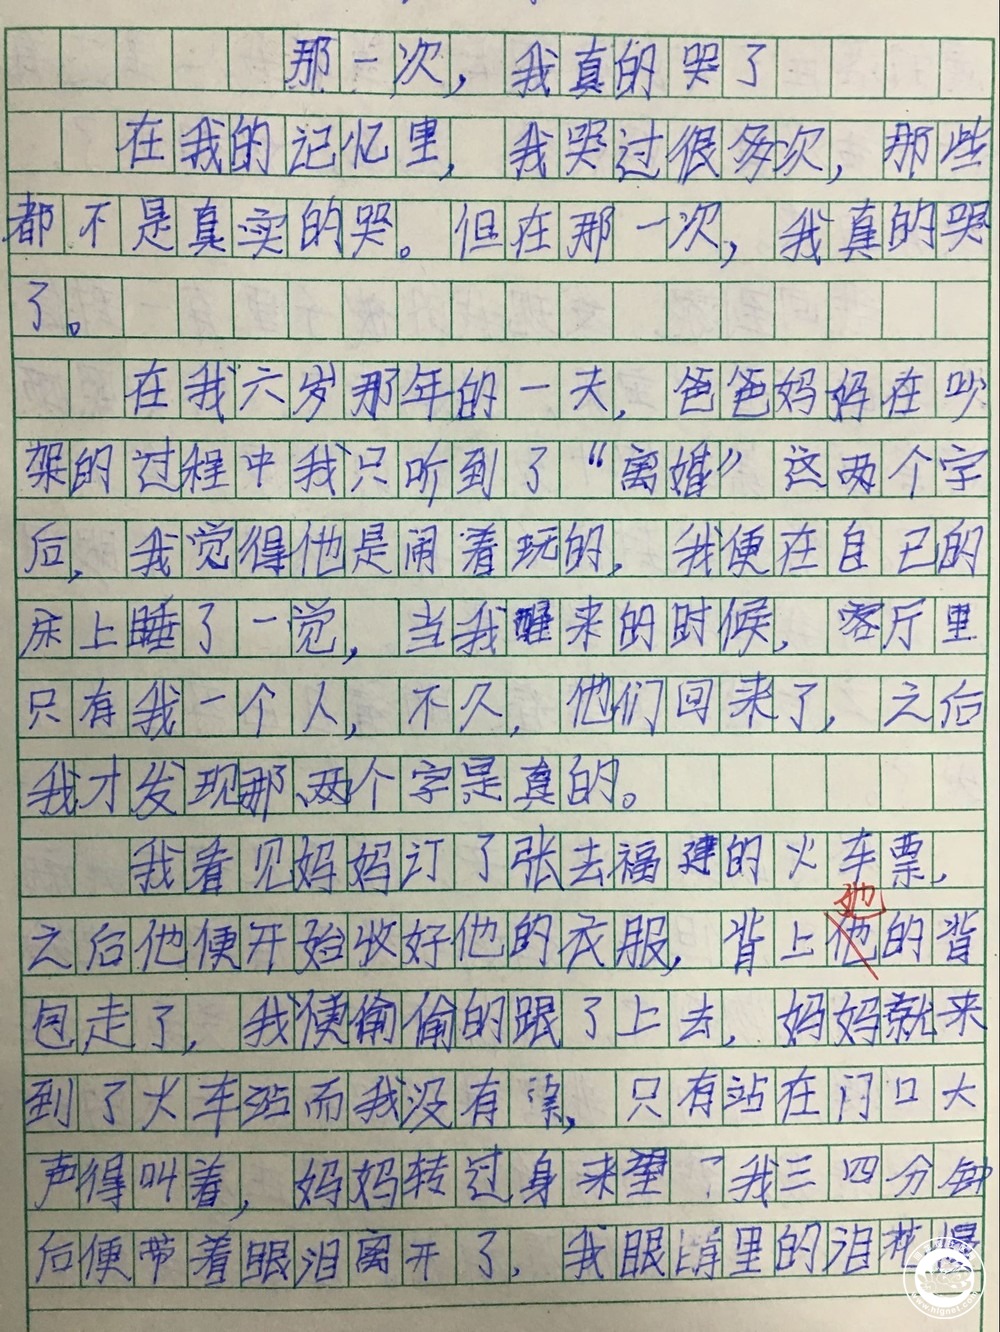 那一次，我真的哭了
在我的记忆里，我哭过很多次，那些
都不是真实的哭。但在那一次，我真的哭
了。
在我六岁那年的一天，爸爸妈妈在吵
架的过程中我只听到了“离婚”这两个字
后，我觉得他是闹着玩的，我便在自己的
床上睡了一觉，当我醒来的时候，客厅里
只有我一个人，不久，他们回来了，之后
我才发现那两个字是真的。
我看见妈妈订了张去福建的火车票，
她
之后他便开始收好他的衣服，背上他的背
包走了，我便偷偷的跟了上去，妈妈就来
到了火车站而我没有票，只有站在门口大
声得叫着，妈妈转过身来望了我三四分钟
后便带着眼泪离开了，我眼睛里的泪花